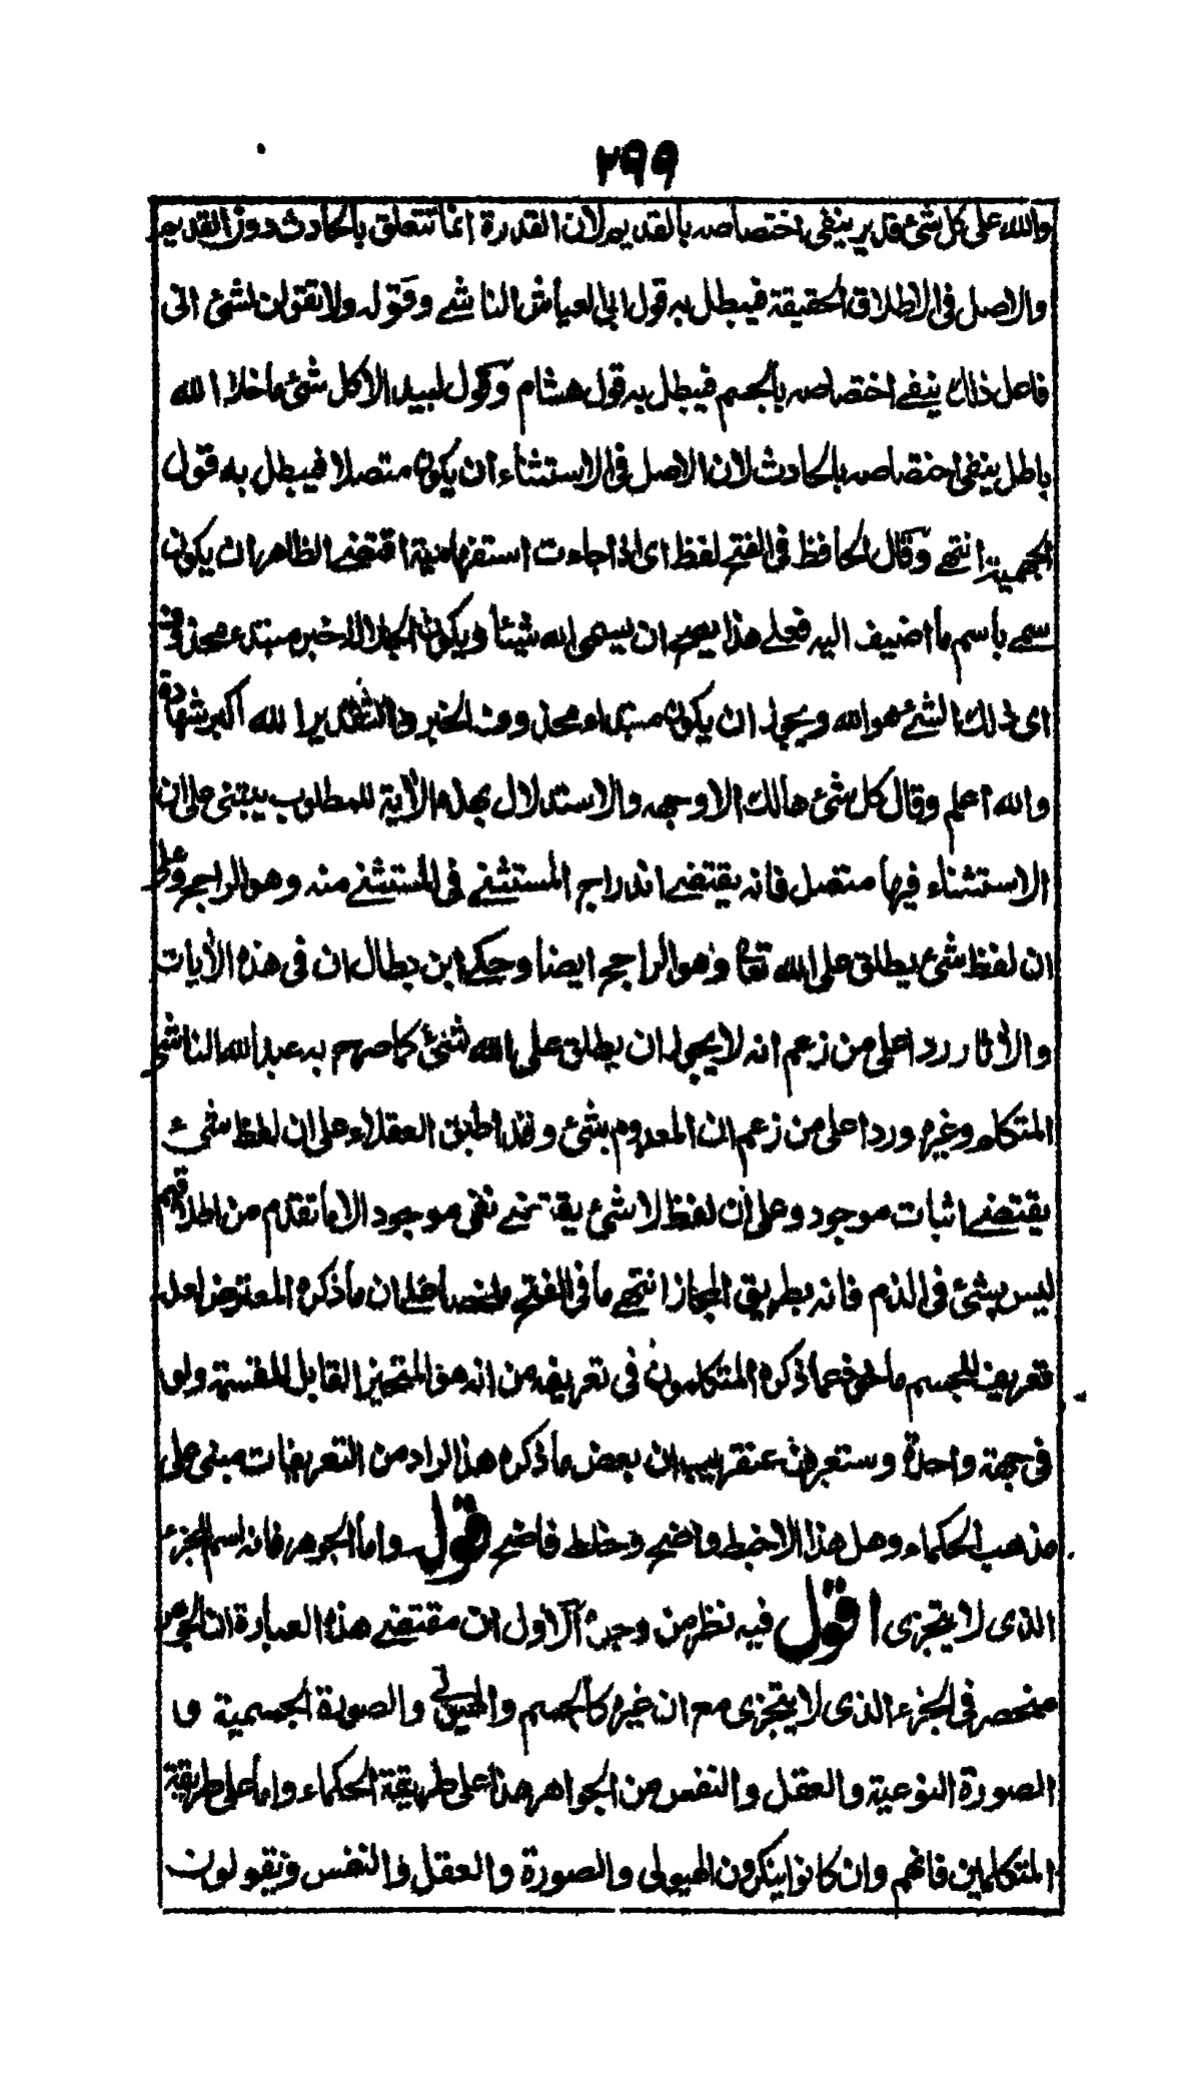 ٢٩٩
والله على كل شئ قدير ينفى اختصاصه بالقديم لان القدرة انما تتعلق بالحادث دون القديم
والاصل فى الاطلاق الحقيقة فيبطل به قول ابى العباش الناشے وقوله ولا تقولن لشئ انى
فاعل ذلك ينفے اختصاصه بالجسم فيبطل به قول هشام وقول لبيد الا كل شئ ما خلا الله
باطل ينفى اختصاصه بالحادث لان الاصل فى الاستثناء ان يكون متصلا فيبطل به قول
الجهمية انتهے وقال الحافظ فى الفتح لفظ اى اذا جاءت استفهامية اقتضے الظاهر ان يكون
سمے باسم ما اضيف اليه فعلے هذا يصح ان يسمى الله شيئا ويكون الجلالة خبر مبتدء محذوف
اى ذلك الشئ هو الله ويجوز ان يكون مبتداء محذوف الخبر والتقدير الله اكبر شهادة
والله اعلم وقال كل شئ هالك الا وجهه والاستدلال بهذه الآية للمطلوب يبتنى على ان
الاستثناء فيها متصل فانه يقتضے اندراج المستثنے فى المستثنے منه وهو الراجح وعلى
ان لفظ شئ يطلق على الله تعا وهو الراجح ايضا وحكے ابن بطال ان فى هذه الآيات
والآثار ردا على من زعم انه لا يجوز ان يطلق على الله شئ كما صرح به عبد الله الناشى
المتكلم وغيره وردا على من زعم ان المعدوم شئ وقد اطبق العقلاء على ان لفظ شئ
يقتضے اثبات موجود وعلى ان لفظ لا شئ يقتضے نفى موجود الا ما تقدم من اطلاقهم
ليس بشئ فى الذم فانه بطريق المجاز انتهے ما فى الفتح ملخصا ان ما ذكره المعترض
تعريف للجسم ما ذكره المتكلمون فى تعريفه من انه هو المتحيز القابل للقسمة ولو
فى جهة واحدة وستعرف عنقريب ان بعض ما ذكره هذا الراد من التعريفات مبنى على
مذهب الحكماء وهل هذا الا خبط واضح وخلط فاضح قول واما الجوهر فانه اسم للجزء
الذى لا يتجزى اقول فيه نظر من وجوه الاول ان مقتضے هذه العبارة ان الجوهر
منحصر فى الجزء الذى لا يتجزى مع ان غيره كالجسم والهيولے والصورة الجسمية و
الصورة النوعية والعقل والنفس من الجواهر هذا على طريقة الحكماء واما على طريقة
المتكلمين فانهم وان كانوا ينكرون الهيولى والصورة والعقل والنفس ويقولون